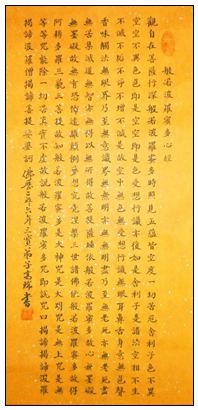 般若波羅蜜多心經
觀自在菩薩行深般若波羅蜜多時照見五蘊皆空度一切苦厄舍利子色不異
空空不異色色即是空空即是色受想行識亦復如是舍利子是諸法空相不生
不滅不垢不淨不增不減是故空中無色無受想行識無眼耳鼻舌身意無色聲
香味觸法無眼界乃至無意識界無無明亦無無明盡乃至無老死亦無老死盡
無苦集滅道無智亦無得以無所得故菩提薩埵依般若波羅蜜多故心無罣礙
無罣礙故無有恐怖遠離顛倒夢想究竟涅槃三世諸佛依般若波羅蜜多故得
阿耨多羅三藐三菩提故知般若波羅蜜多是大神咒是大明咒是無上咒是無
等等咒能除一切苦真實不虛故說般若波羅蜜多咒即說咒曰揭諦揭諦波羅揭
諦波羅僧揭諦菩提娑婆訶 佛曆二五 年 三寶弟子高 書